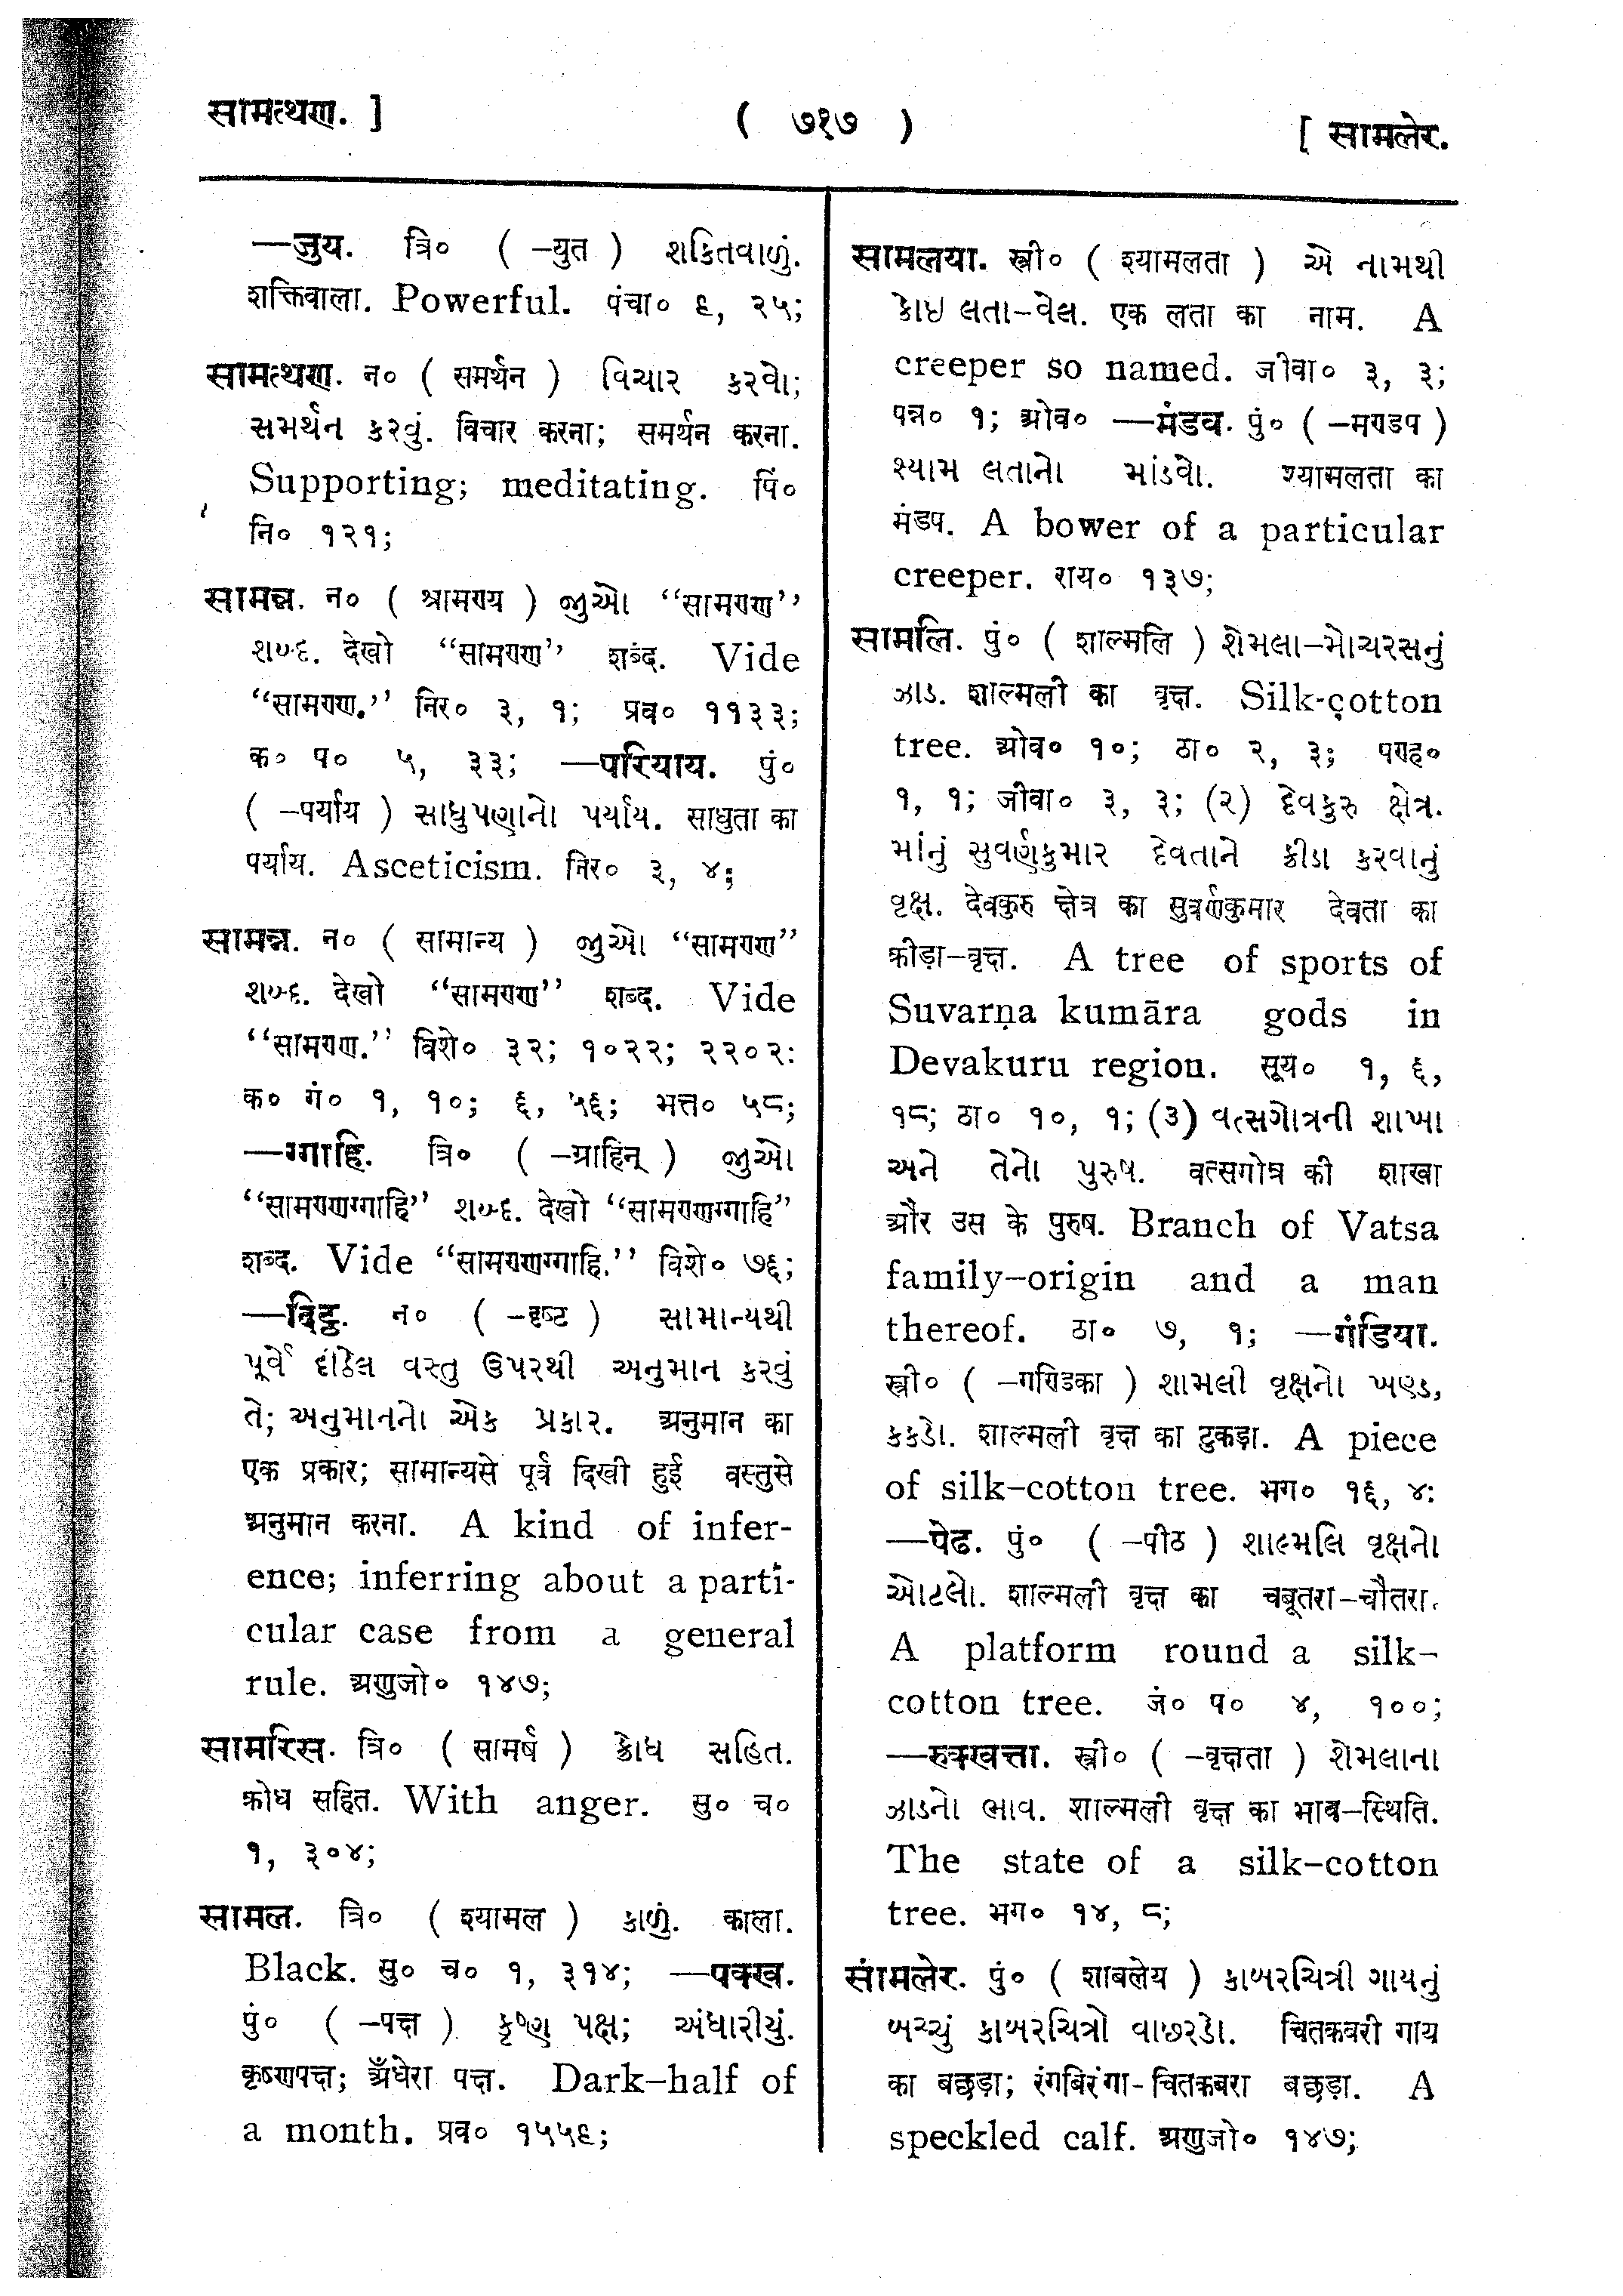 सामत्थण. ]
( ७१७ )
[ सामलेर.
—जुय. त्रि० ( –युत ) શકિતવાળું.
शक्तिवाला. Powerful. पंचा० ६, २५;
सामत्थण. न० ( समर्थन ) વિચાર કરવો;
સમર્થન કરવું. विचार करना; समर्थन करना.
Supporting; meditating. पिं०
नि० १२१;
सामन्न. न० ( श्रामण्य ) જુઓ “सामण्ण”
શબ્દ. देखो “सामण्ण” शब्द. Vide
“सामण्ण.” निर० ३, १; प्रव० ११३३;
क० प० ५, ३३; —परियाय. पुं०
( –पर्याय ) સાધુપણાનો પર્યાય. साधुता का
पर्याय. Asceticism. निर० ३, ४;
सामन्न. न० ( सामान्य ) જુઓ “सामण्ण”
શબ્દ. देखो “सामण्ण” शब्द. Vide
“सामण्ण.” विशे० ३२; १०२२; २२०२:
क० गं० १, १०; ६, ५६; भत्त० ५८;
—ग्गाहि. त्रि० ( –ग्राहिन् ) જુઓ
“सामण्णग्गाहि” શબ્દ. देखो “सामण्णग्गाहि”
शब्द. Vide “सामण्णग्गाहि.” विशे० ७६;
—दिट्ठ. न० ( –दृष्ट ) સામાન્યથી
પૂર્વે દીઠેલ વસ્તુ ઉપરથી અનુમાન કરવું
તે; અનુમાનનો એક પ્રકાર. अनुमान का
एक प्रकार; सामान्यसे पूर्व दिखी हुई वस्तुसे
अनुमान करना. A kind of infer-
ence; inferring about a parti-
cular case from a general
rule. अणुजो० १४७;
सामरिस. त्रि० ( सामर्ष ) ક્રોધ સહિત.
क्रोध सहित. With anger. सु० च०
१, ३०४;
सामल. त्रि० ( श्यामल ) કાળું. काला.
Black. सु० च० १, ३१४; —पक्ख.
पुं० ( –पक्ष ) કૃષ્ણ પક્ષ; અંધારીયું.
कृष्णपक्ष; अँधेरा पक्ष. Dark–half of
a month. प्रव० १५५६;
सामलया. स्त्री० ( श्यामलता ) એ નામથી
કોઇ લતા–વેલ. एक लता का नाम. A
creeper so named. जीवा० ३, ३;
पन्न० १; ओव० —मंडव. पुं० ( –मण्डप )
શ્યામ લતાનો માંડવો. श्यामलता का
मंडप. A bower of a particular
creeper. राय० १३७;
सामलि. पुं० ( शाल्मलि ) શેમલા–મોચરસનું
ઝાડ. शाल्मली का वृक्ष. Silk-cotton
tree. ओव० १०; ठा० २, ३; पण्ह०
१, १; जीवा० ३, ३; (२) દેવકુરુ ક્ષેત્ર.
માંનું સુવર્ણકુમાર દેવતાને ક્રીડા કરવાનું
વૃક્ષ. देवकुरु क्षेत्र का सुवर्णकुमार देवता का
क्रीड़ा–वृक्ष. A tree of sports of
Suvarṇa kumāra gods in
Devakuru region. सूय० १, ६,
१८; ठा० १०, १; (૩) વત્સગોત્રની શાખા
અને તેનો પુરુષ. वत्सगोत्र की शाखा
और उस के पुरुष. Branch of Vatsa
family–origin and a man
thereof. ठा० ७, १; —गंडिया.
स्त्री० ( –गण्डिका ) શામલી વૃક્ષનો ખણ્ડ,
કકડો. शाल्मली वृक्ष का टुकड़ा. A piece
of silk–cotton tree. भग० १६, ४:
—पेढ. पुं० ( –पीठ ) શાલ્મલિ વૃક્ષનો
ઓટલો. शाल्मली वृक्ष का चबूतरा–चौतरा.
A platform round a silk–
cotton tree. जं० प० ४, १००;
—रुक्खत्ता. स्त्री० ( –वृक्षता ) શેમલાના
ઝાડનો ભાવ. शाल्मली वृक्ष का भाव–स्थिति.
The state of a silk–cotton
tree. भग० १४, ८;
सामलेर. पुं० ( शाबलेय ) કાબરચિત્રી ગાયનું
બચ્ચું કાબરચિત્રો વાછરડો. चितकबरी गाय
का बछड़ा; रंगबिरंगा-चितकबरा बछड़ा. A
speckled calf. अणुजो० १४७;